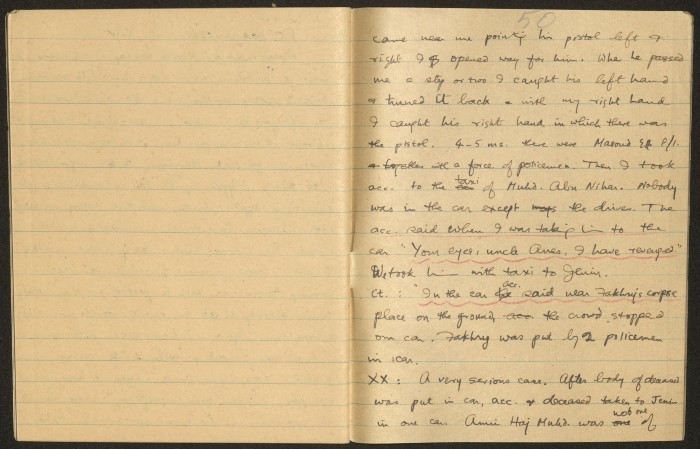 50
came near me pointing his pistol left &
right I opened way for him. When he passed
me a step or two I caught his left hand
& turned it back & with my right hand
I caught his right hand in which there was
the pistol. 4-5 ms. there were Masoud Eff. P/I.
& together with a force of policemen. Then I took
acc. to the taxi of Muhd. Abu Nihar. Nobody
was in the car except the driver. The
acc. said when I was taking him to the
car "Your eyes, uncle Anes, I have revenged"
We took him with taxi to Jenin.
Ct. : "In the car acc. said near Fakhry's corpse
place on the ground, the crowd stopped
our car. Fakhry was put by 2 policemen
in car.
XX : A very serious case. After body of deceased
was put in car, acc. & deceased taken to Jenin
in one car. Amin Haj Muhd. was not one of